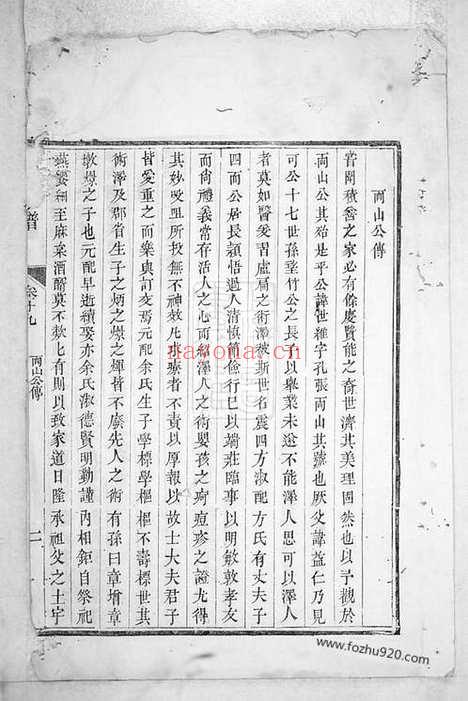 兩山公傳
昔聞積善之家必有餘慶賢能之裔世濟其美理固然也以予觀於
兩山公其殆是乎公諱世雍字孔張兩山其號也厥父諱益仁乃見
可公十七世孫筌竹公之長子以舉業未遂不能澤人思可以澤人
者莫如醫爰習盧扁之術澤被斯世名震四方淑配方氏有丈夫子
四而公居長穎悟過人清慎而儉行已以端莊臨事以明敏敦孝友
而尚禮義常存活人之心而尚活人之術嬰孩之疴痘疹之證尤得
其妙㕮咀所投無不神效凡以療者不責以厚報以故士大夫君子
皆愛重之而樂與訂交焉元配余氏生子學標學樞樞不壽標世其
術澤及郡省生子之炳之爆之輝皆不廢先人之術有孫曰章增章
墩爆之子也元配早逝續娶亦余氏淑德賢明勤謹內相鉅自祭祀
燕饗細至麻菜酒醑莫不欵匕有則以致家道日隆承祖父之土宇
譜
卷十九
兩山公傳
二
nayona.cn
www.fozhu920.com